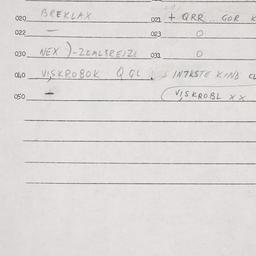 020 BREKLAX 021 + QRR GOR K
022 — 023 O
030 NEX )-ZEALSREIZE 031 O
040 VISKPOBOK Q GL . INTKSTE KINB CL
050 — (VISKROBL XX